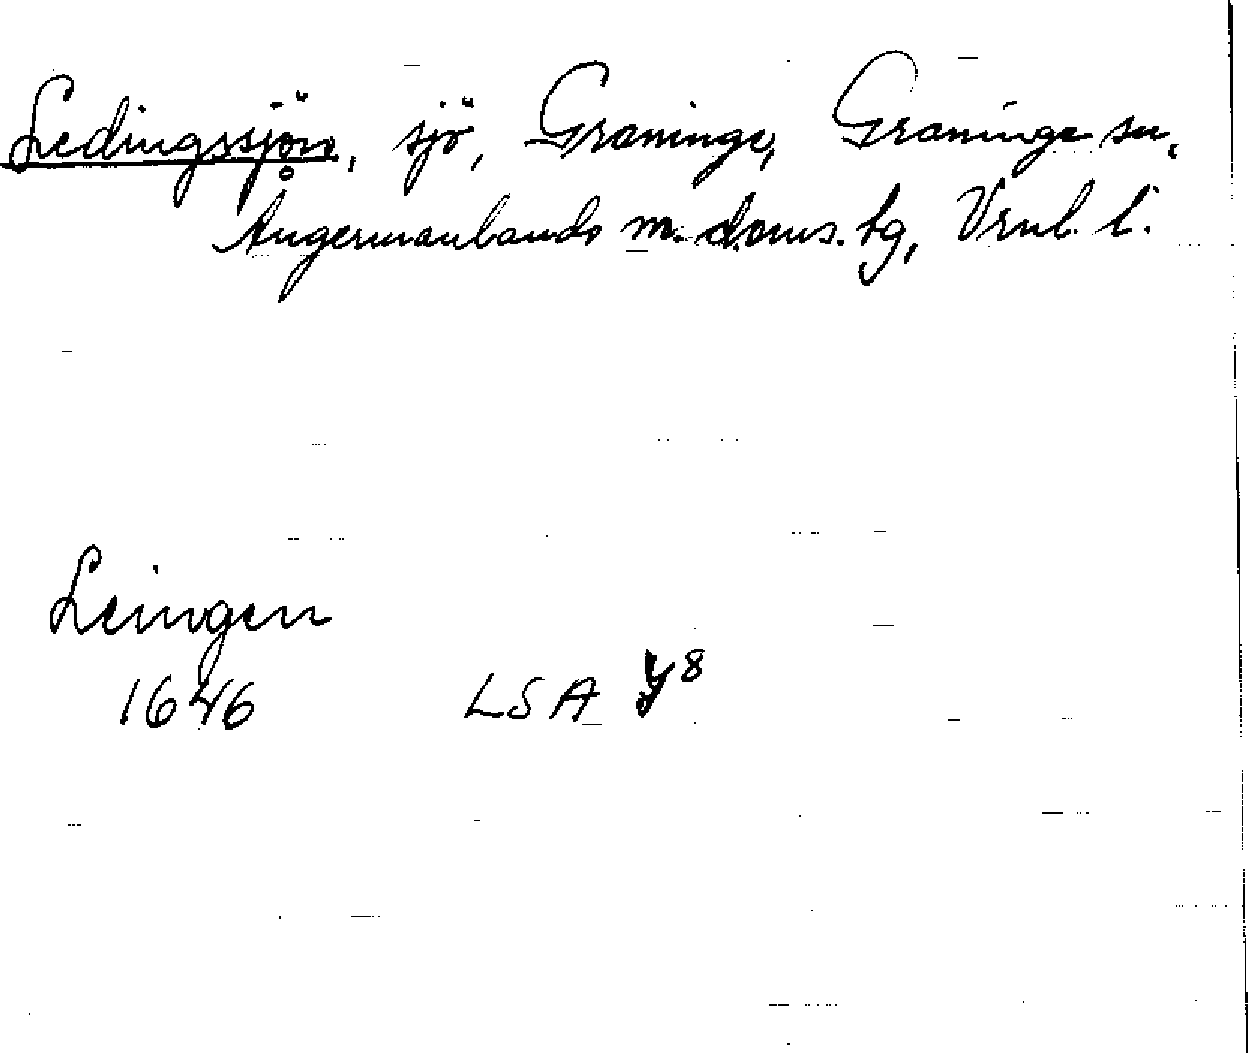 Ledingssjön, sjö, Graninge, Graninge sn,
Ångermanlands m. doms. tg, Vrnl. l.
Leingen
1646 LSA Y8